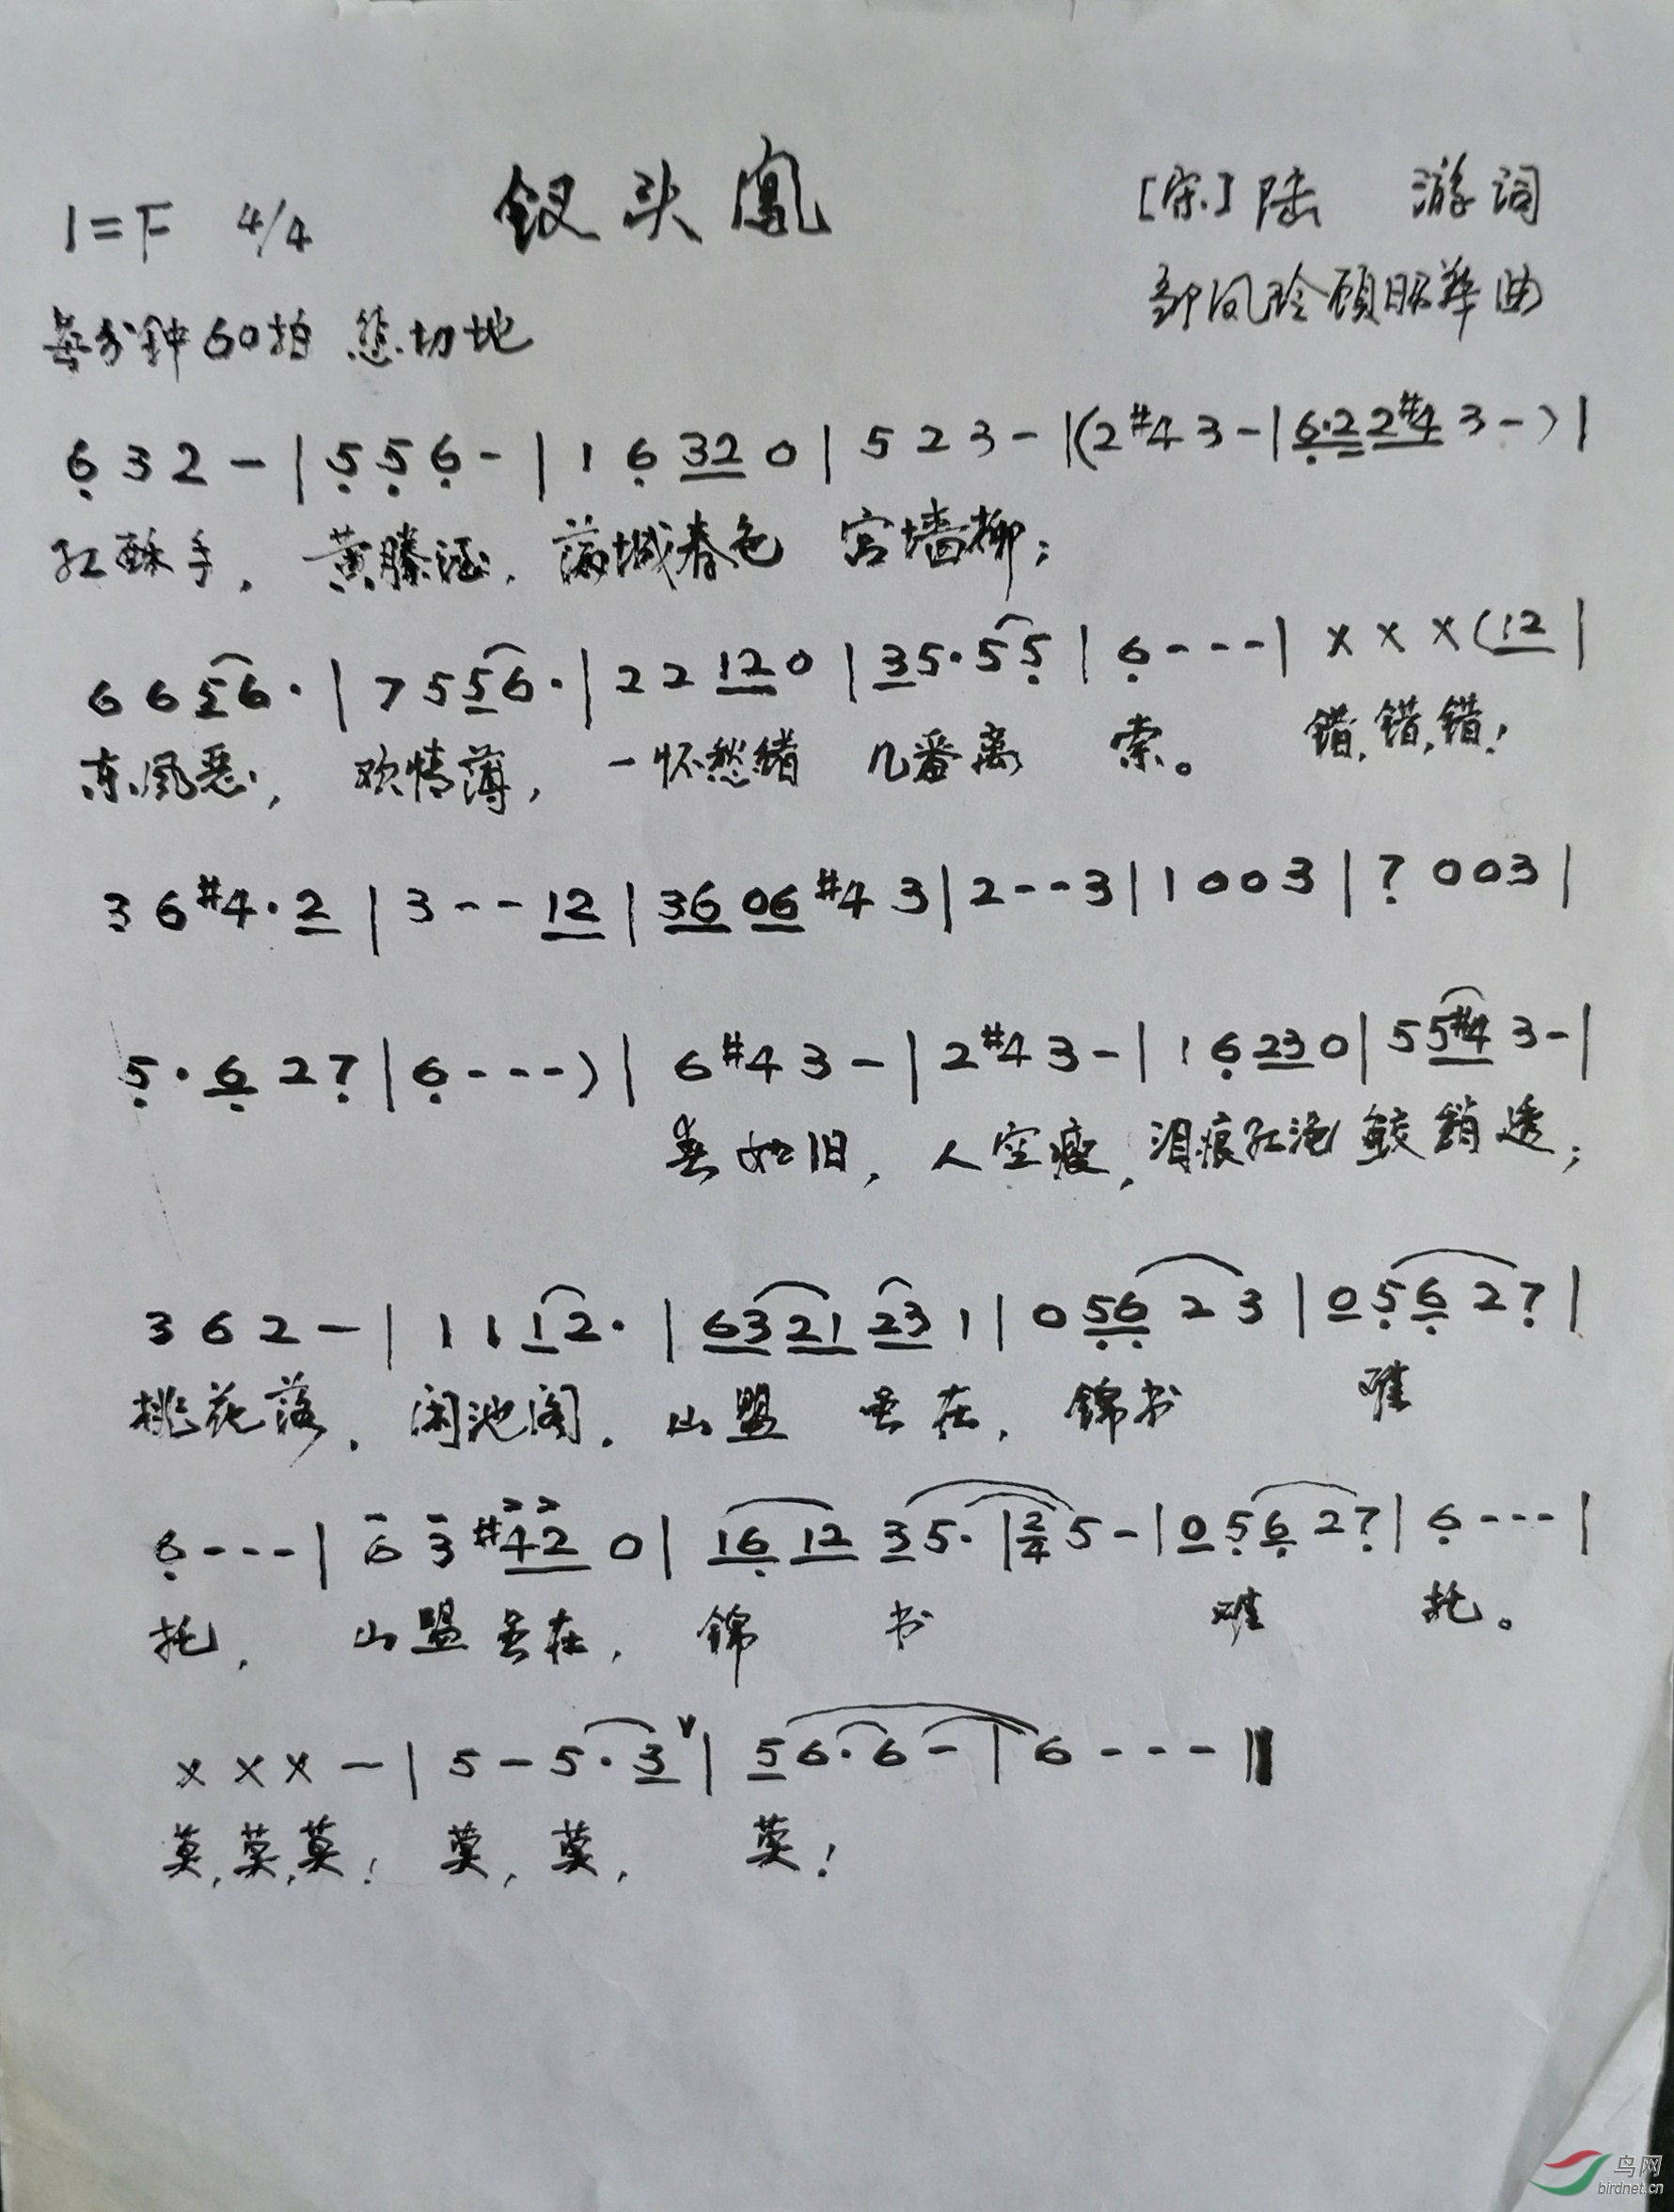 1=F 4/4 钗头凤 [宋]陆 游词
每分钟60拍 悲切地 邹凤玲顾昭华曲
6̣ 3 2 - | 5̣ 5̣ 6̣ - | 1 6̣ 32 0 | 5 2 3 - | (2 #4 3 - | 6̣·2 2#4 3 - ) |
红酥手, 黄滕酒, 满城春色 宫墙柳;
6 6 56· | 7 5 56· | 2 2 12 0 | 35· 5 5̣ | 6̣ - - - | X X X (12 |
东风恶, 欢情薄, 一怀愁绪 几番离 索。 错,错,错!
3 6 #4· 2 | 3 - - 12 | 36 06 #4 3 | 2 - - 3 | 1 0 0 3 | 7̣ 0 0 3 |
5̣· 6̣ 2 7̣ | 6̣ - - - ) | 6 #4 3 - | 2 #4 3 - | 1 6̣ 23 0 | 5 5#4 3 - |
春如旧, 人空瘦, 泪痕红浥 鲛绡透;
3 6 2 - | 1 1 12· | 63 21 23 1 | 0 5̣6̣ 2 3 | 0 5̣ 6̣ 2 7̣ |
桃花落, 闲池阁, 山盟 虽在, 锦书 难
6̣ - - - | 6 3 #42 0 | 16̣ 12 35· | 2/4 5 - | 0 5̣ 6̣ 2 7̣ | 6̣ - - - |
托, 山盟虽在, 锦 书 难 托。
X X X - | 5 - 5· 3 | 56· 6 - | 6 - - - ‖
莫,莫,莫! 莫,莫, 莫!
鸟网
birdnet.cn